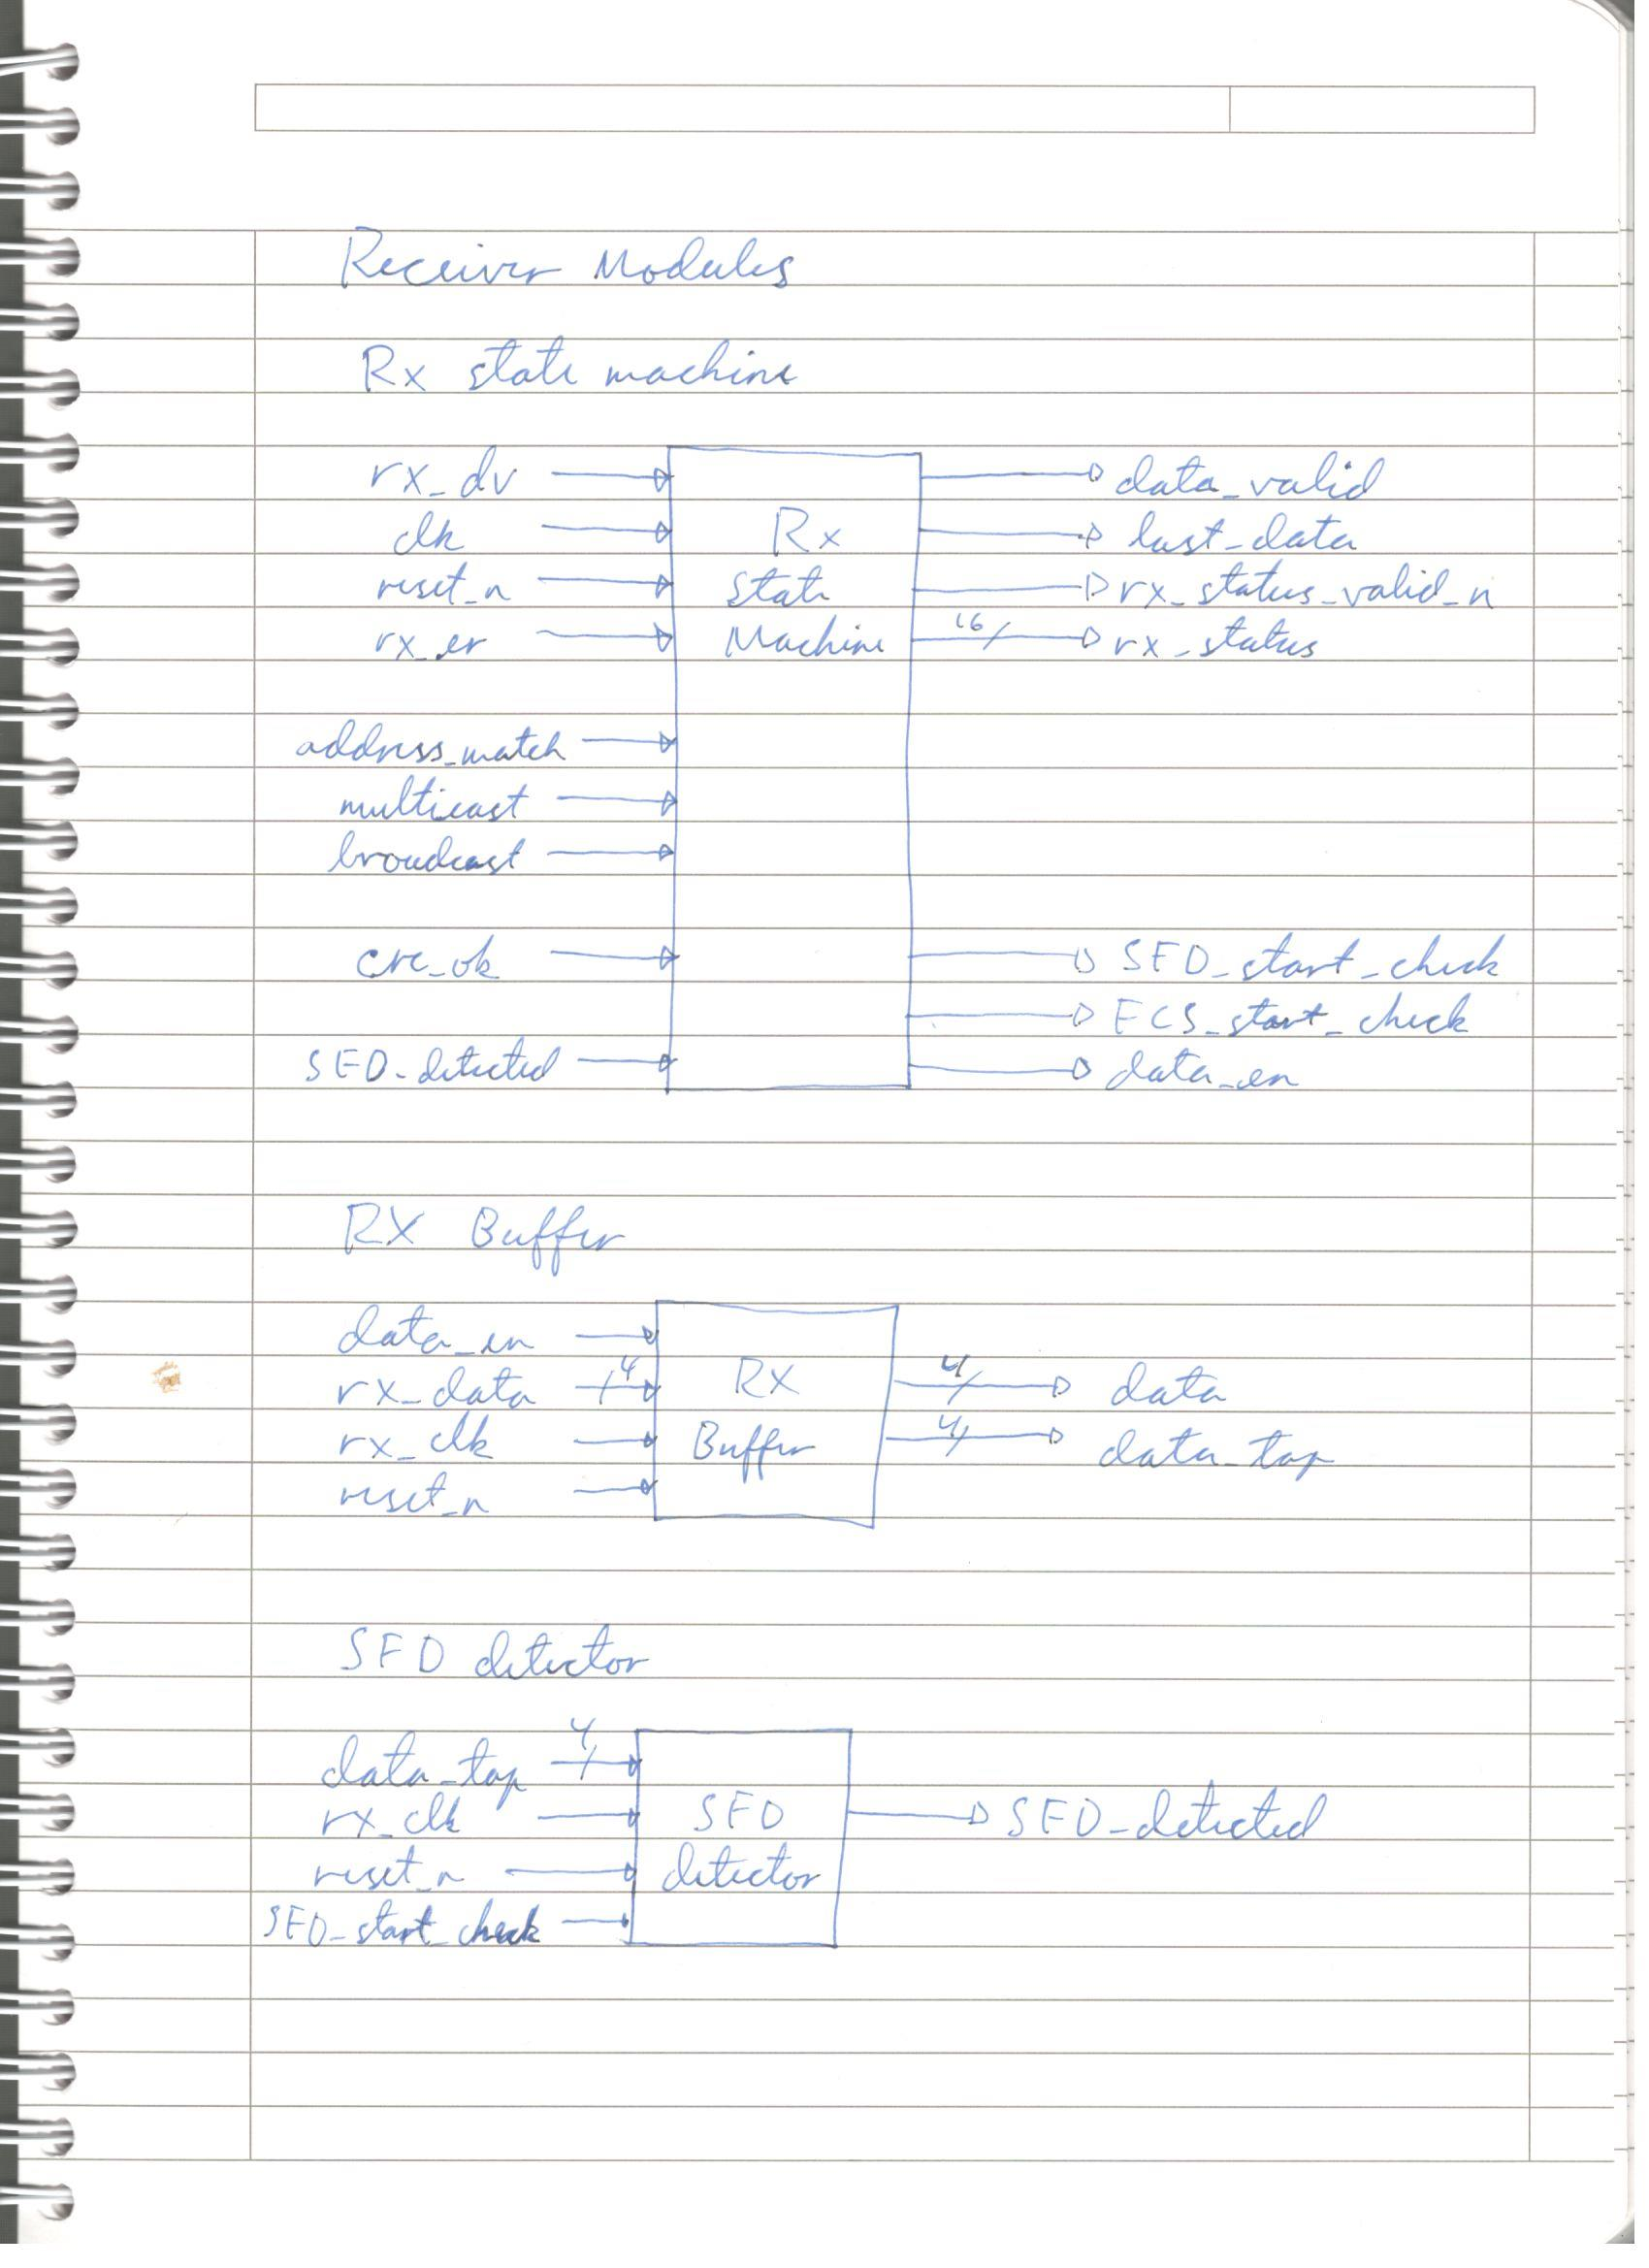 Receiver Modules
Rx state machine
rx_dv
clk
reset_n
rx_er
address_match
multicast
broadcast
crc_ok
SFD_detected
Rx
State
Machine
data_valid
last_data
rx_status_valid_n
16
rx_status
SFD_start_check
FCS_start_check
data_en
RX Buffer
data_en
rx_data 4
rx_clk
reset_n
RX
Buffer
4 data
4 data_tap
SFD detector
data_tap 4
rx_clk
reset_n
SFD_start_check
SFD
detector
SFD_detected